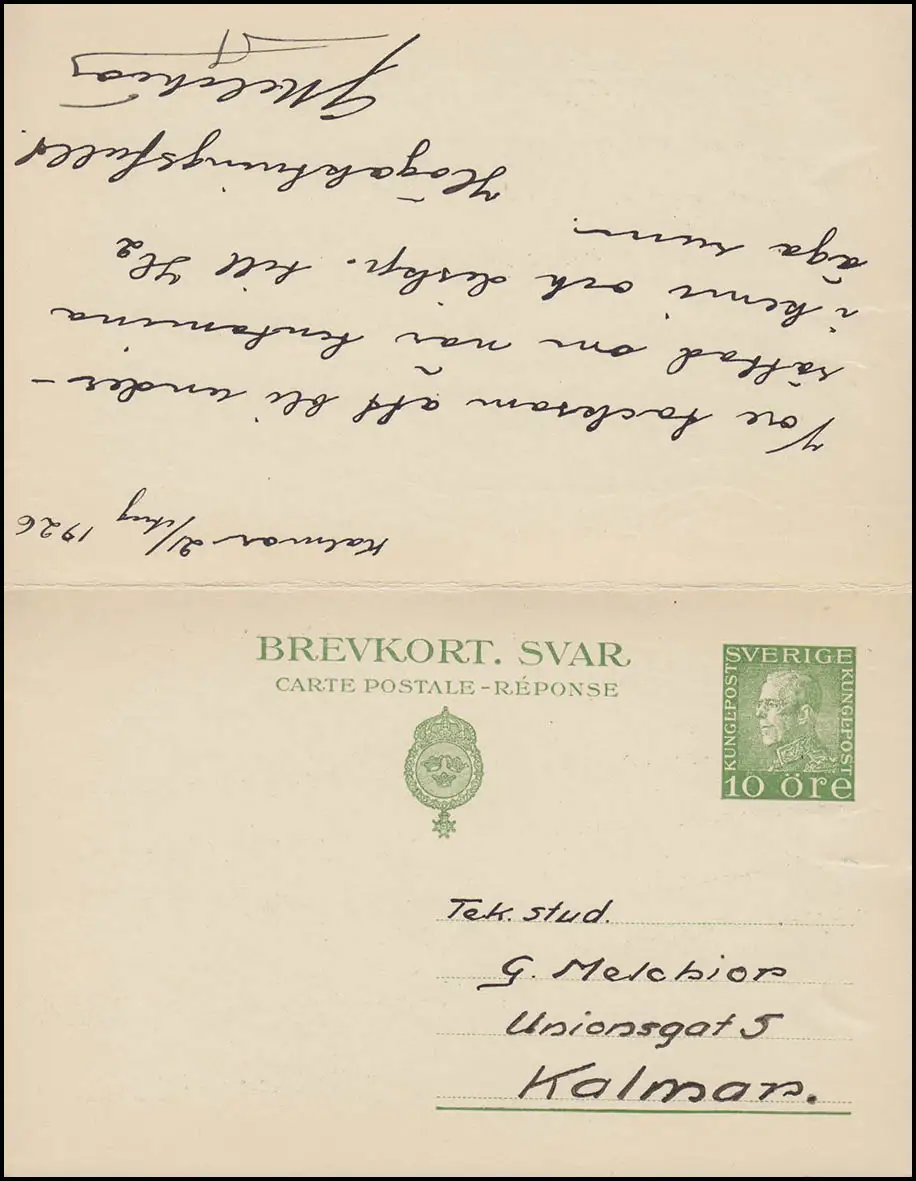 Kalmar 2/Aug 1926
Vore tacksam att bli under-
rättad om när tentamina
i kemi och diskp. till H2
äga rum.
Högaktningsfullt
GMelchior
BREVKORT. SVAR
CARTE POSTALE-RÉPONSE
SVERIGE
KUNGL.POST
KUNGL.POST
10 öre
Tek. stud.
G. Melchior
Unionsgat 5
Kalmar.